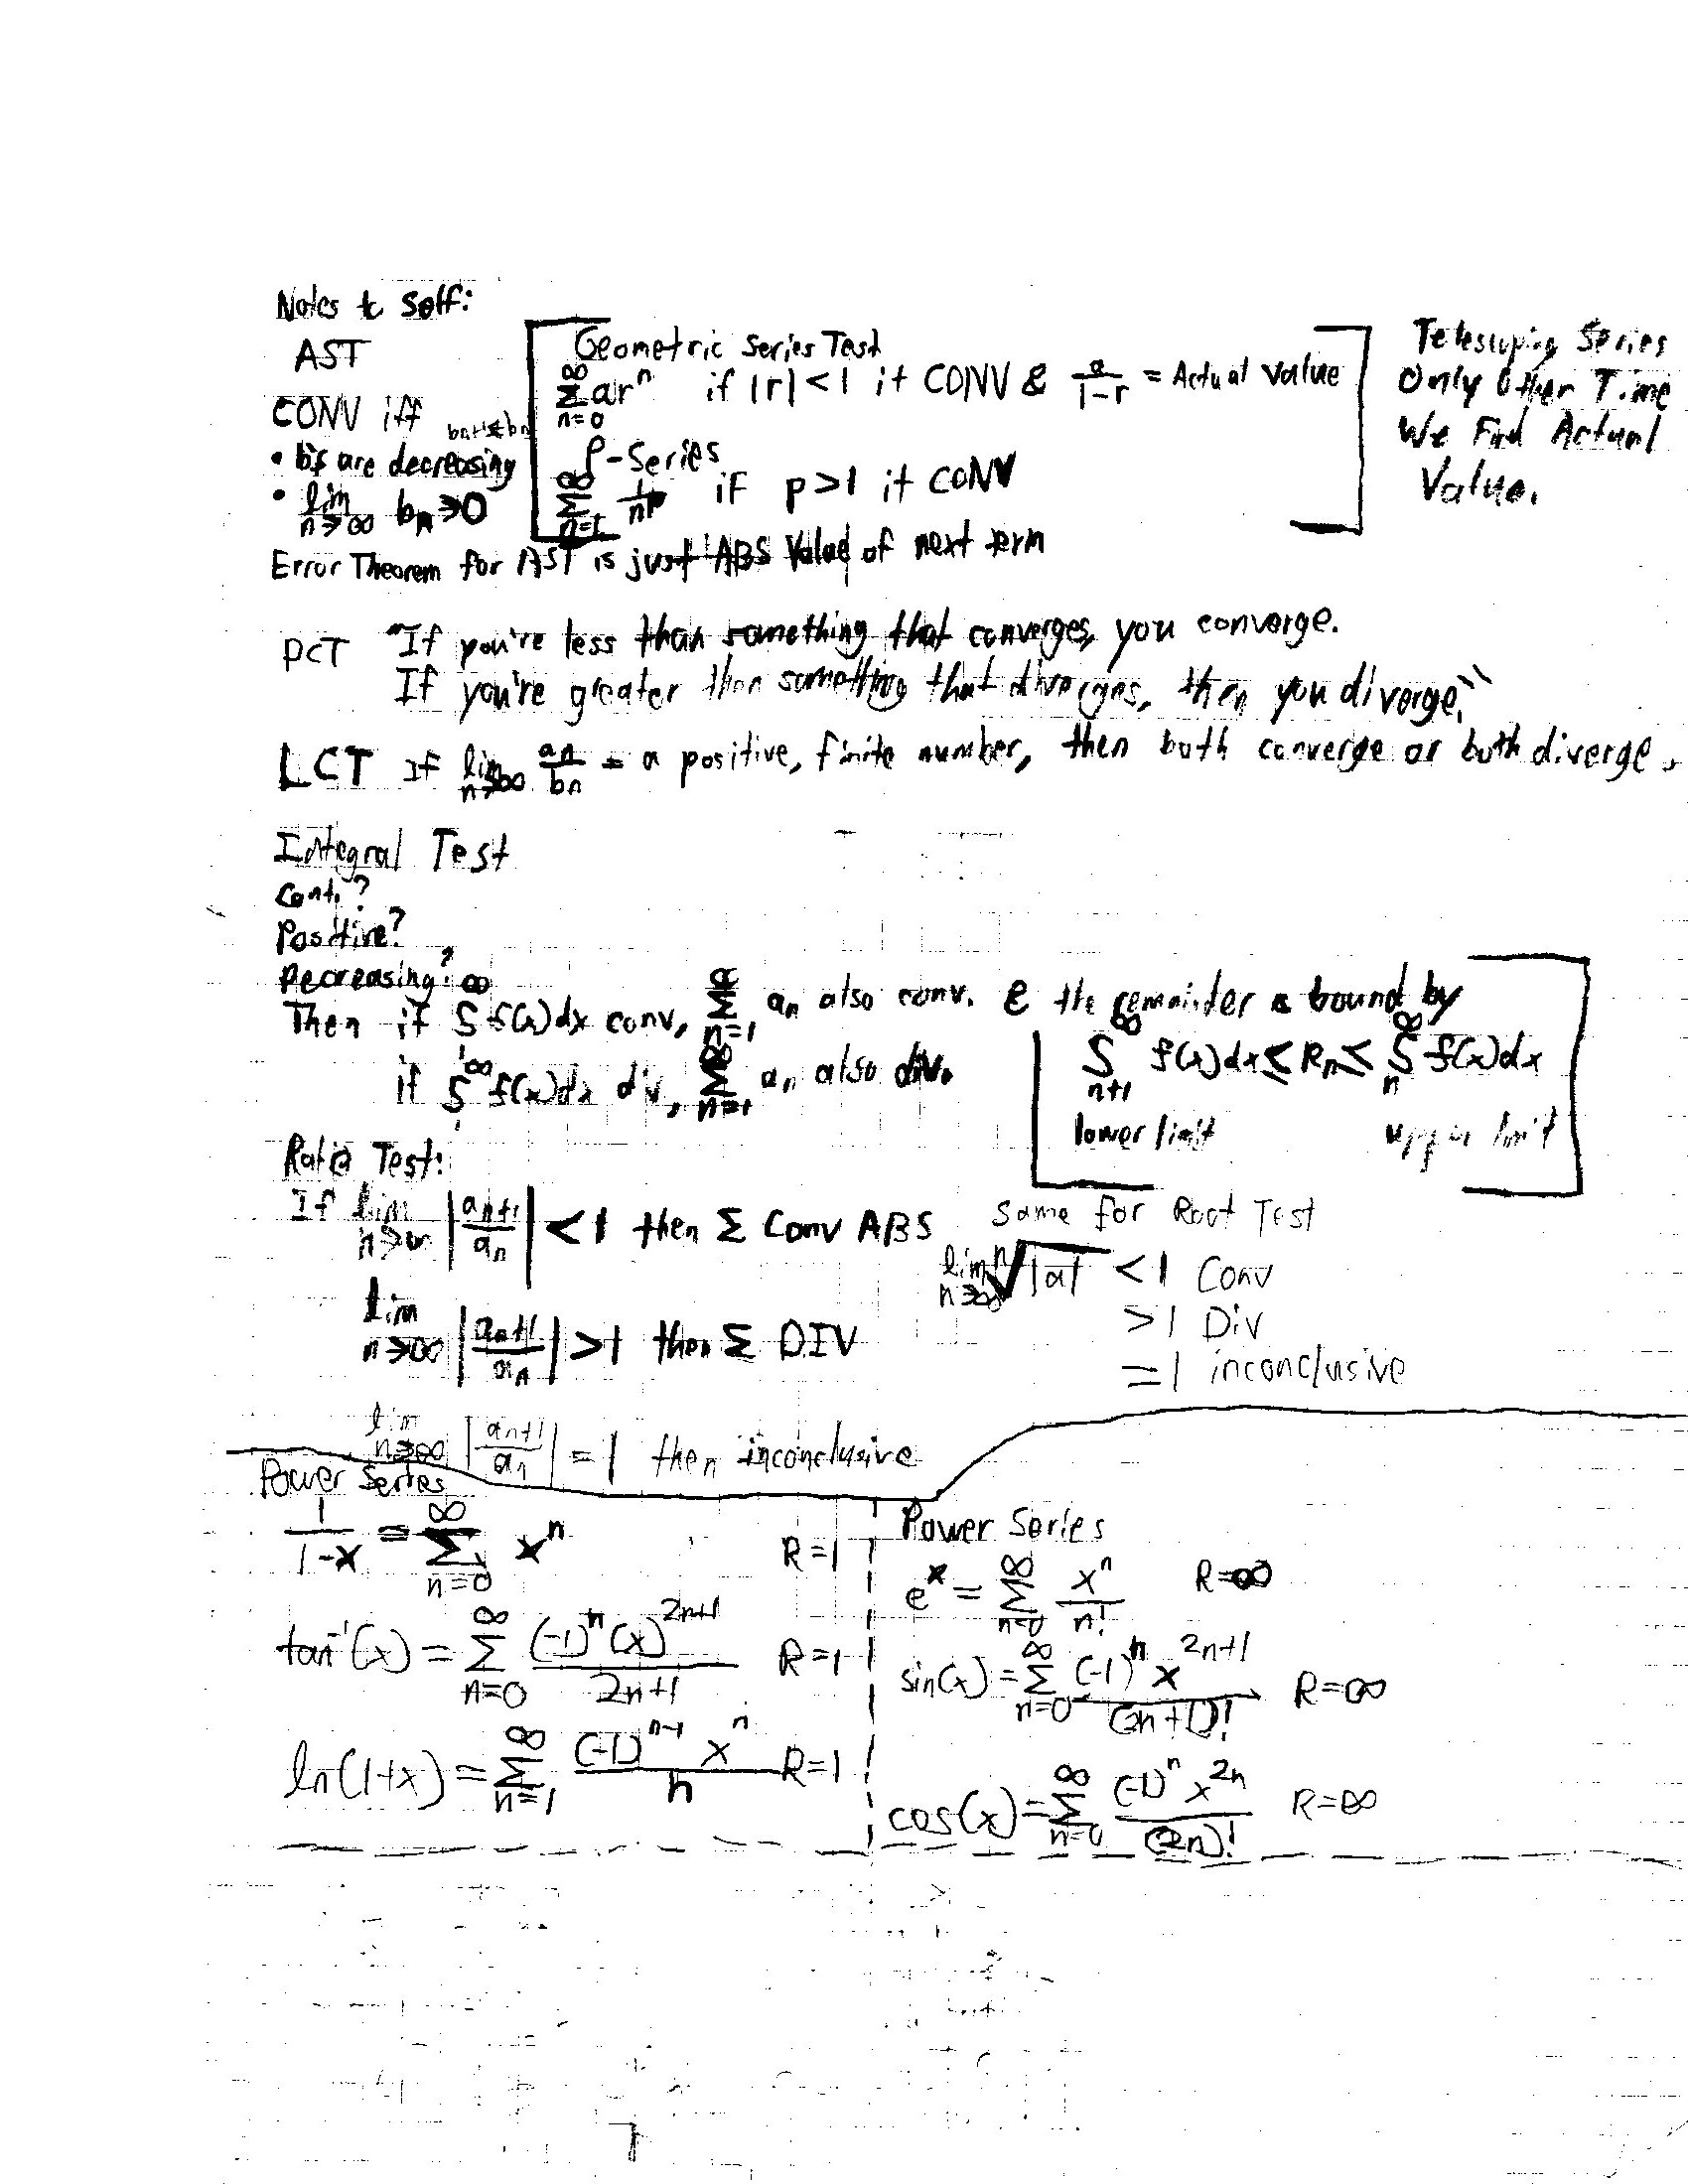 Notes to Self:
AST
CONV iff bn+1≤bn
• b's are decreasing
• lim n→∞ bn→0
Geometric Series Test
∞ Σ n=0 ar^n if |r|<1 it CONV & a/(1-r) = Actual Value
P-Series
∞ Σ n=1 1/n^p if p>1 it CONV
Telescoping Series
Only Other Time
We Find Actual
Value.
Error Theorem for AST is just ABS Value of next term
DCT "If you're less than something that converges, you converge.
If you're greater then something that diverges, then you diverge."
LCT If lim n→∞ an/bn = a positive, finite number, then both converge or both diverge.
Integral Test
Cont.?
Positive?
Decreasing?
Then if ∫1^∞ f(x)dx conv, ∞ Σ n=1 an also conv. & the remainder is bound by
if ∫1^∞ f(x)dx div, ∞ Σ n=1 an also div.
∫n+1^∞ f(x)dx ≤ Rn ≤ ∫n^∞ f(x)dx
lower limit upper limit
Ratio Test:
If lim n→∞ |an+1/an| <1 then Σ Conv ABS
lim n→∞ |an+1/an| >1 then Σ DIV
lim n→∞ |an+1/an| =1 then inconclusive
Same for Root Test
lim n→∞ n√|a| <1 Conv
>1 Div
=1 inconclusive
Power Series
1/(1-x) = ∞ Σ n=0 x^n R=1
tan^-1(x) = ∞ Σ n=0 (-1)^n (x)^2n+1 / 2n+1 R=1
ln(1+x) = ∞ Σ n=1 (-1)^n-1 x^n / n R=1
Power Series
e^x = ∞ Σ n=0 x^n/n! R=∞
sin(x) = ∞ Σ n=0 (-1)^n x^2n+1 / (2n+1)! R=∞
cos(x) = ∞ Σ n=0 (-1)^n x^2n / (2n)! R=∞